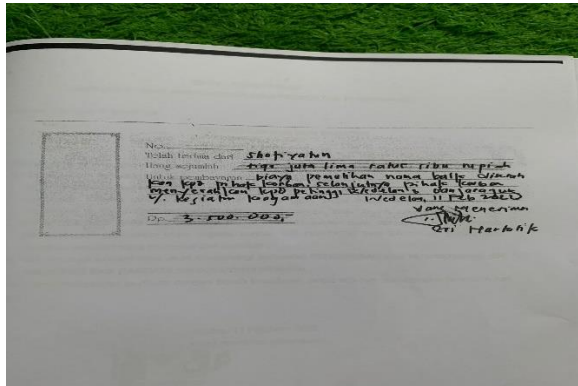 No.
Telah terima dari Shofiyatun
Uang sejumlah tiga juta lima ratus ribu rupiah
Untuk pembayaran biaya pemulihan nama baik
kan kpd pihak korban selanjutnya pihak korban
menyerahkan kpd petinggi Wedelan
u/ kegiatan keagamaan. Wedelan, 11 Feb 2021
Yang Menerima
Rp. 3.500.000,-
Sri Hartatik